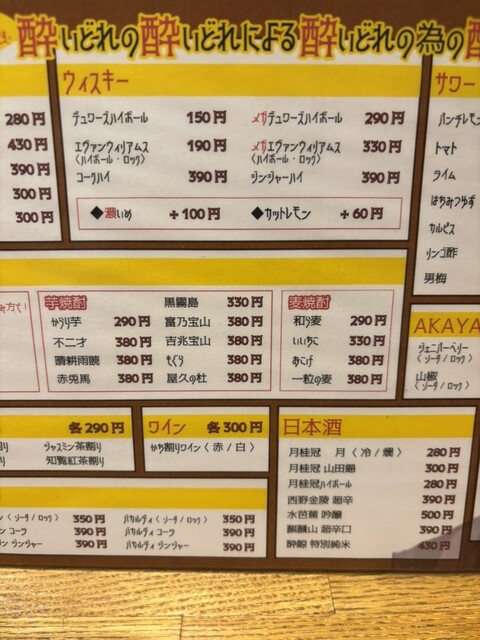 酔いどれの酔いどれによる酔いどれの為の酔
280円
430円
390円
300円
300円
ウィスキー
デュワーズハイボール 150円 メガデュワーズハイボール 290円
エヴァンウィリアムス 190円 メガエヴァンウィリアムス 330円
(ハイボール・ロック) (ハイボール・ロック)
コークハイ 390円 ジンジャーハイ 390円
◆濃いめ +100円 ◆カットレモン +60円
サワー
パンチレモン
トマト
ライム
はちみつゆず
カルピス
リンゴ酢
男梅
芋焼酎
からり芋 290円
不二才 380円
晴耕雨読 380円
赤兎馬 380円
黒霧島 330円
富乃宝山 380円
吉兆宝山 380円
もぐら 380円
屋久の杜 380円
麦焼酎
和ら麦 290円
いいちこ 330円
おこげ 380円
一粒の麦 380円
AKAYA
ジュニパーベリー
(ソーダ/ロック)
山椒
(ソーダ/ロック)
各290円
ジャスミン茶割り
知覧紅茶割り
ワイン 各300円
かち割りワイン(赤/白)
日本酒
月桂冠 月(冷/燗) 280円
月桂冠 山田錦 300円
月桂冠ハイボール 280円
西野金陵 超辛 390円
水芭蕉 吟醸 500円
麒麟山 超辛口 390円
酔鯨 特別純米 430円
ン(ソーダ/ロック) 350円 バカルディ(ソーダ/ロック) 350円
ン コーラ 390円 バカルディ コーラ 390円
ン ジンジャー 390円 バカルディ ジンジャー 390円